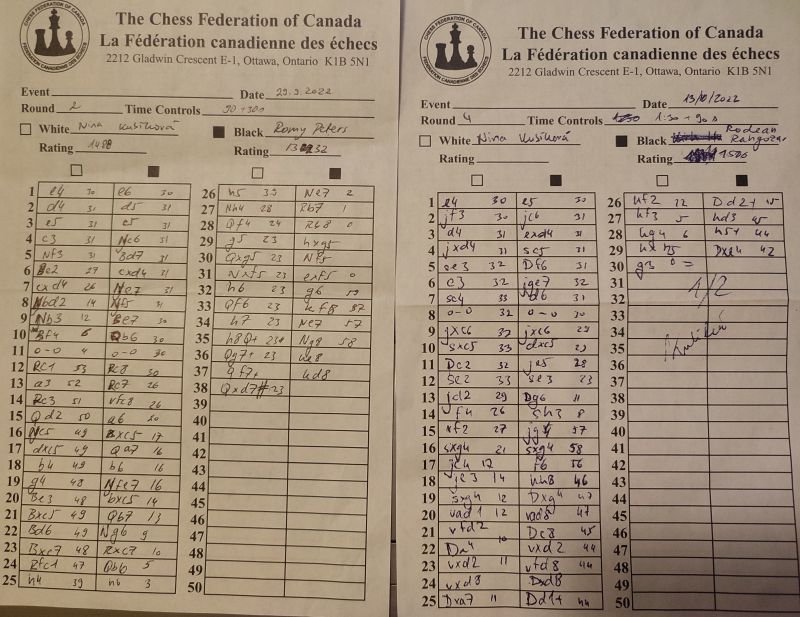 The Chess Federation of Canada
La Fédération canadienne des échecs
2212 Gladwin Crescent E-1, Ottawa, Ontario K1B 5N1
CHESS FEDERATION OF CANADA
FEDERATION CANADIENNE DES ECHECS
Event Date 29.9.2022
Round 2 Time Controls 90+30s
White Nina Kusíková Black Romy Peters
Rating 1488 Rating
1 e4 30 e6 30
2 d4 31 d5 31
3 e5 31 c5 31
4 c3 31 Nc6 31
5 Nf3 31 Bd7 31
6 Be2 27 cxd4 31
7 cxd4 26 Ne7 31
8 Nbd2 14 Nf5 31
9 Nb3 12 Be7 30
10 Bf4 6 Qb6 30
11 0-0 4 0-0 30
12 Rc1 53 Rc8 30
13 a3 52 Rc7 26
14 Rc3 51 Rfc8 26
15 Qd2 50 a6 20
16 Nc5 49 Bxc5 17
17 dxc5 49 Qa7 16
18 b4 49 b6 16
19 g4 48 Nfe7 16
20 Be3 48 bxc5 14
21 Bxc5 49 Qb7 13
22 Bd6 49 Ng6 9
23 Bxc7 48 Rxc7 10
24 Rfc1 47 Qb6 5
25 h4 39 h6 3
26 h5 39 Ne7 2
27 Nh4 28 Rb7 1
28 Qf4 24 Rb8 0
29 g5 23 hxg5
30 Qxg5 23 Nf5
31 Nxf5 23 exf5 0
32 h6 23 g6 59
33 Qf6 23 Kf8 57
34 h7 23 Ne7 57
35 h8Q+ 23 Ng8 58
36 Qg7+ 23 Ke8
37 Qf7+ Kd8
38 Qxd7# 23
39
40
41
42
43
44
45
46
47
48
49
50
The Chess Federation of Canada
La Fédération canadienne des échecs
2212 Gladwin Crescent E-1, Ottawa, Ontario K1B 5N1
CHESS FEDERATION OF CANADA
FEDERATION CANADIENNE DES ECHECS
Event Date 13/10/2022
Round 4 Time Controls 1:30+30s
White Nina Kusíková Black
Rating Rating 1506
1 e4 30 e5 30
2 jf3 30 jc6 31
3 d4 31 exd4 31
4 jxd4 31 sc5 31
5 se3 32 Df6 31
6 c3 32 jge7 32
7 sc4 33 31
8 0-0 32 0-0 30
9 jxc6 32 jxc6 29
10 sxc5 33 dxc5 29
11 Dc2 32 je5 28
12 se2 33 se3 23
13 jd2 29 Dg6 11
14 f4 26 sh3 8
15 vf2 27 57
16 sxg4 21 sxg4 58
17 12 f6 56
18 je3 14 kh8 46
19 sxg4 12 Dxg4 47
20 vad1 12 vad8 47
21 vfd2 Dc8 45
22 10 vxd2 44
23 vxd2 11 vfd8 44
24 vxd8 Dxd8
25 Dxa7 11 Dd1+ 44
26 kf2 12 Dd2+ 45
27 kf3 5 hd3 45
28 kg4 6 h5+ 44
29 kxh5 Dxg4 42
30 g3 =
31 1/2
32
33
34
35
36
37
38
39
40
41
42
43
44
45
46
47
48
49
50